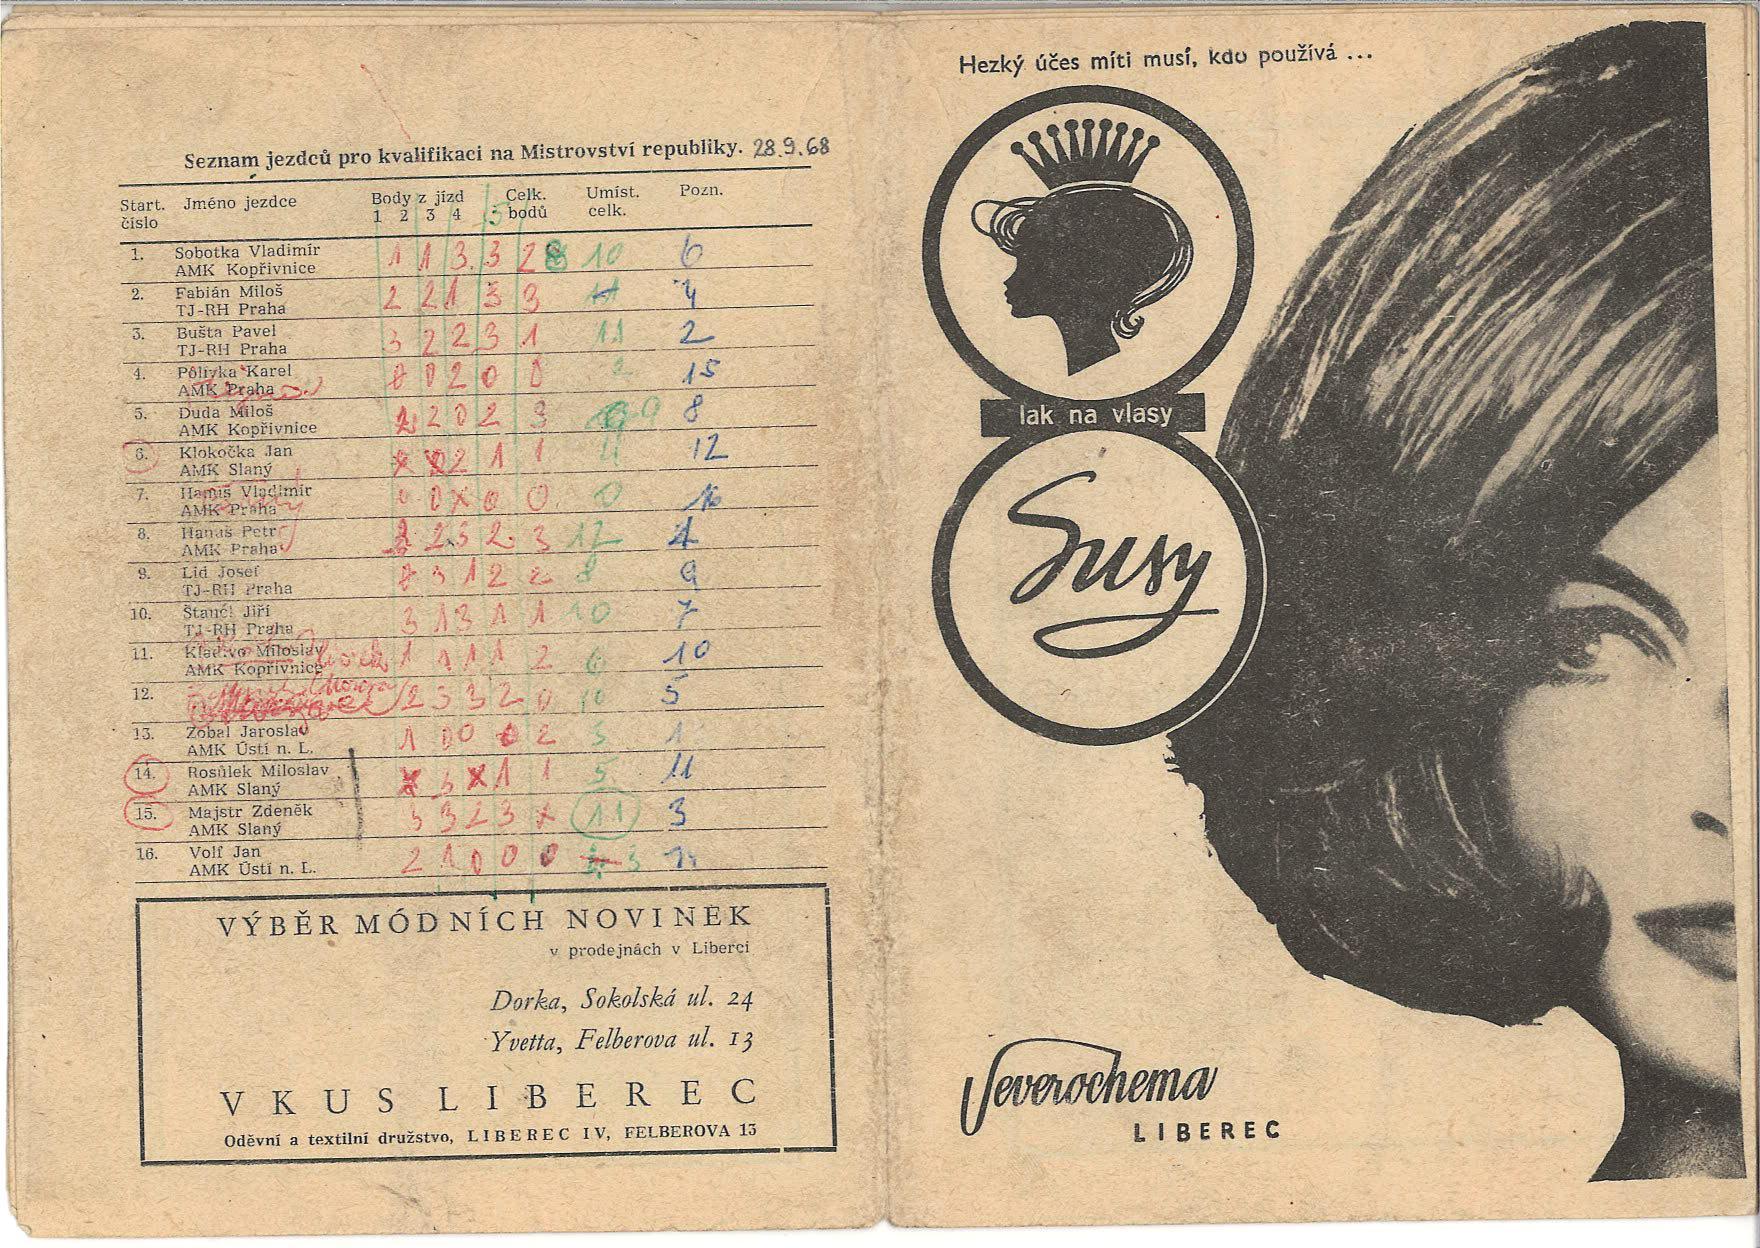 Seznam jezdců pro kvalifikaci na Mistrovství republiky. 28.9.68
Start. číslo Jméno jezdce Body z jízd 1 2 3 4 5 Celk. bodů Umíst. celk. Pozn.
1. Sobotka Vladimír 1 1 3 3 2 10 6
AMK Kopřivnice
2. Fabián Miloš 2 2 1 3 3 4
TJ-RH Praha
3. Bušta Pavel 3 2 2 3 1 11 2
TJ-RH Praha
4. Polívka Karel 0 0 2 0 0 2 15
AMK Praha
5. Duda Miloš 2 2 0 2 3 9 8
AMK Kopřivnice
6. Klokočka Jan 2 1 1 12
AMK Slaný
7. Hamis Vladimír 0 0 x 0 0 0 16
AMK Praha
8. Hanuš Petr 2 2 3 2 3 12
AMK Praha
9. Lid Josef 3 1 2 2 8 9
TJ-RH Praha
10. Štancl Jiří 3 1 3 1 1 10 7
TJ-RH Praha
11. Kladivo Miloslav 1 1 1 1 2 6 10
AMK Kopřivnice
12. 2 3 3 2 0 10 5
13. Zobal Jaroslav 1 0 0 0 2 3
AMK Ústí n. L.
14. Rosůlek Miloslav x 3 x 1 1 5 11
AMK Slaný
15. Majstr Zdeněk 3 3 2 3 x 11 3
AMK Slaný
16. Volf Jan 2 1 0 0 0 3
AMK Ústí n. L.
VÝBĚR MÓDNÍCH NOVINEK
v prodejnách v Liberci
Dorka, Sokolská ul. 24
Yvetta, Felberova ul. 13
VKUS LIBEREC
Oděvní a textilní družstvo, LIBEREC IV, FELBEROVA 13
Hezký účes míti musí, kdo používá ...
lak na vlasy
Susy
Severochema
LIBEREC